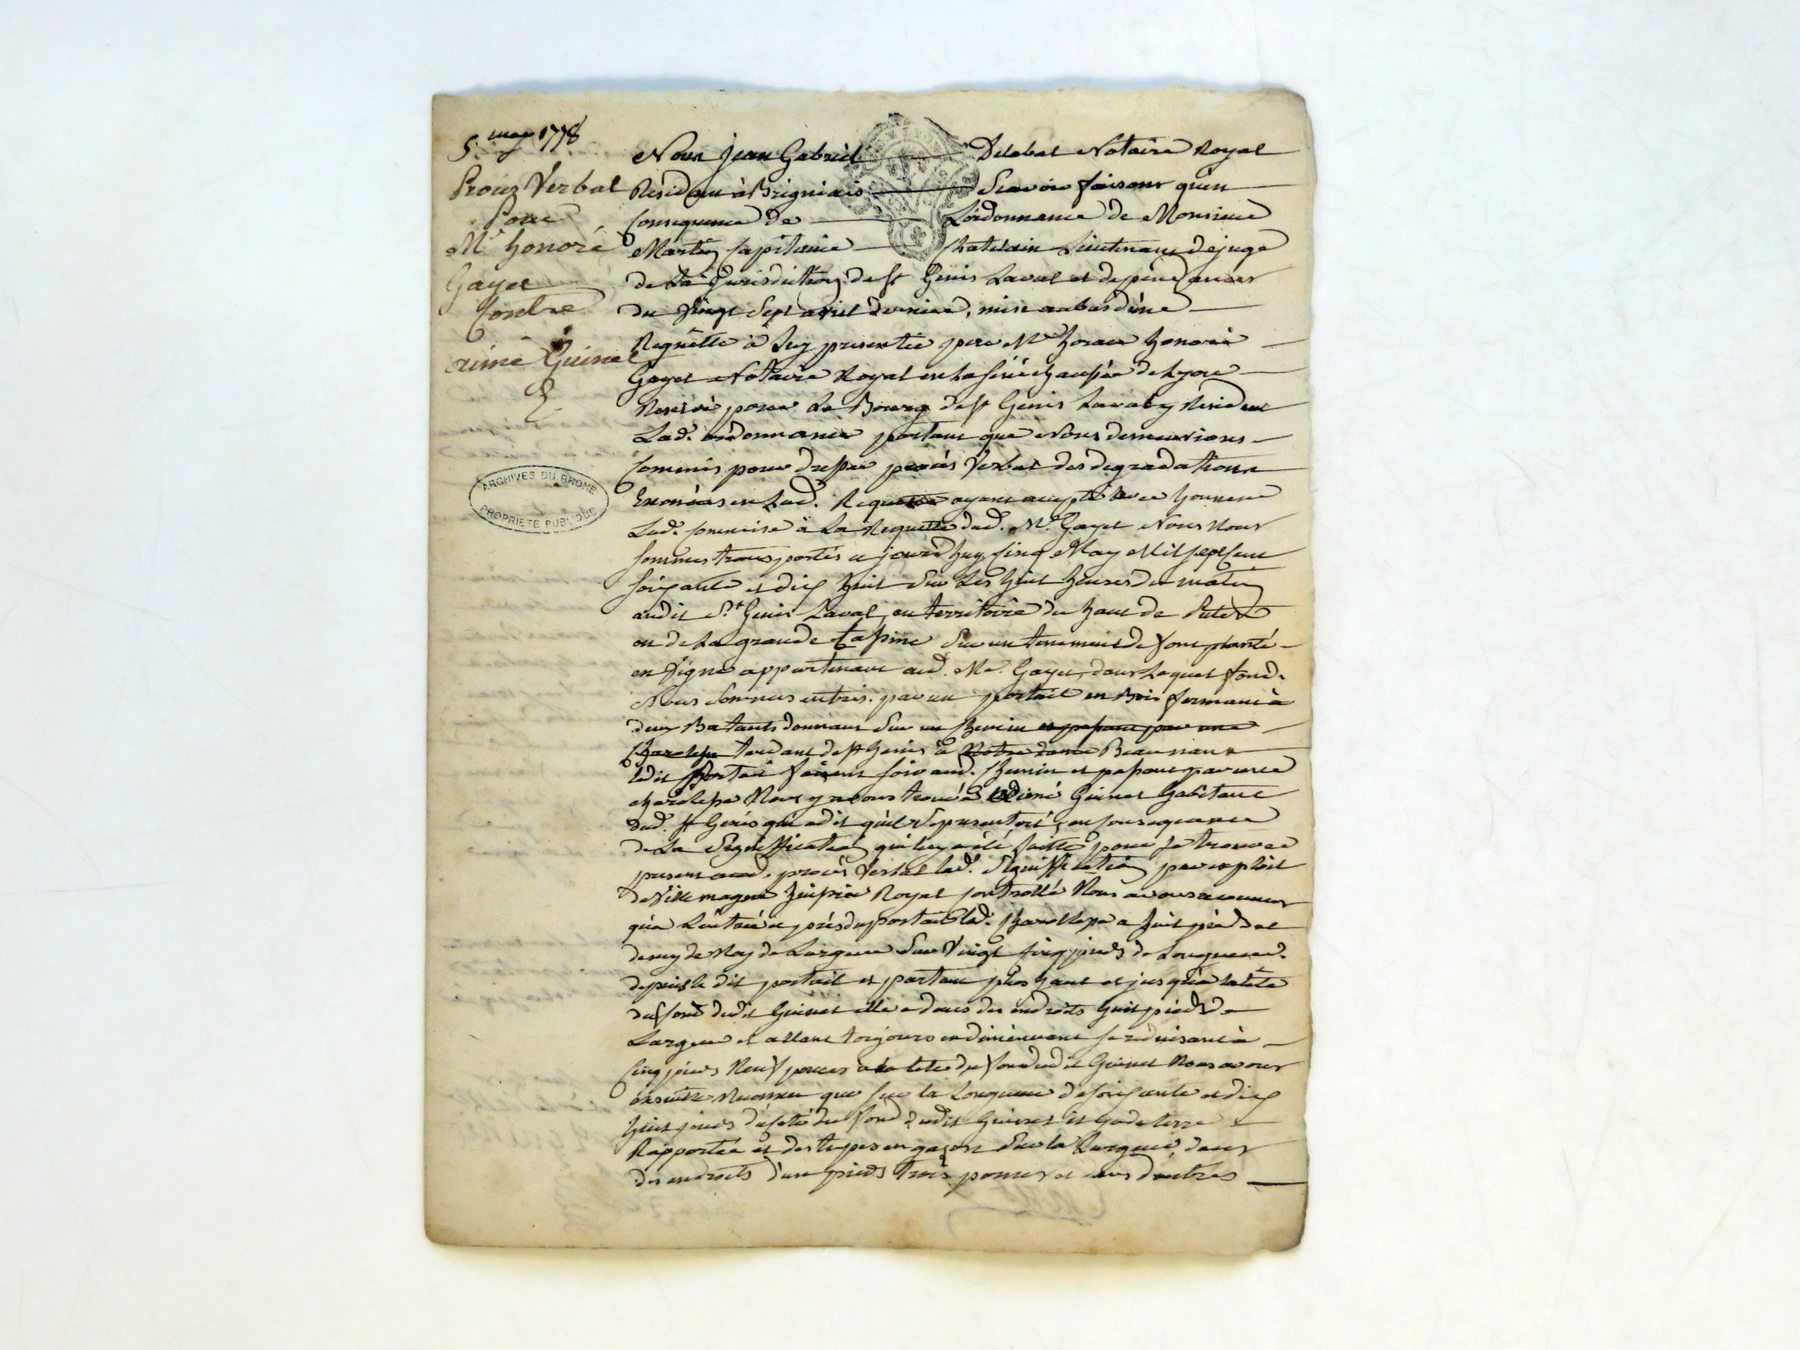 5. may 1778
Procez Verbal
Pour
Mr. honoré
Gayet
Contre
aimé Guinet
ARCHIVES DU RHONE
PROPRIETE PUBLIQUE
Nous Jean Gabriel Delabat Notaire Royal
Residant à Brigniais Scavoir faisons qu'en
Consequence de L'ordonnance de Monsieur
Martin Capitaine Chatelain Lieutenant de juge
de La Jurisdiction de St Genis Laval et dependances
du Vingt Sept avril dernier, mise au bas d'une
Requette à luy presentée par Me horace honoré
Gayet Notaire Royal en La sénéchaussée de Lyon
Reservé pour Le Bourg de St Genis Laval y Resident
Lad. ordonnance portant que Nous demeurions
Commis pour dresser procès Verbal des degradations
Enoncées en Lad. Requette ayant accepté avec honneur
Lad. Commise à La Requette dud. Me Gayet Nous Nous
sommes transportés ce jourd'huy cinq May Mil sept cent
soixante et dix huit Sur Les huit heures du matin
audit St Genis Laval, au territoire du haut de
ou de La grande Sur un tenement de fond planté
en Vigne appartenant aud. Me. Gayet, dans Lequel fond.
Nous sommes entrés par un portail en Bois fermant à
deux Batants donnant Sur un chemin et passant par une
Charolesse tendant de St Genis à Notre dame Beaunant
ledit portail faisant face aud. Chemin et passant par une
charolesse Nous y avons trouvé aimé Guinet habitant
dud. St Genis qui a dit qu'il S'y presentoit, en Consequence
de La Signiffication qui luy a été faitte pour se trouver
present aud. procès Verbal lad. Signiffication par exploit
de Villemagne huissier Royal Controllé Nous avons reconnu
qu'a L'entrée et près du portail lad. Charollesse a huit pieds et
demy de Roy de Largeur Sur Vingt cinq pieds de Longueur.
depuis le dit portail et partant plus haut et jusqu'a la tête
du fond dudit Guinet elle a dans des endroits huit pieds de
Largeur et allant toujours en diminuant se reduisant à
Cinq pieds Neuf pouces a la tete du fond dudit Guinet Nous avons
ensuitte Reconnu que sur la Longueur de soixante et dix
huit pieds du coté du fond dudit Guinet il y a de terre
Rapportée et des en gazon Sur la Largeur, dans
des endroits d'un pieds trois pouces et dans d'autres